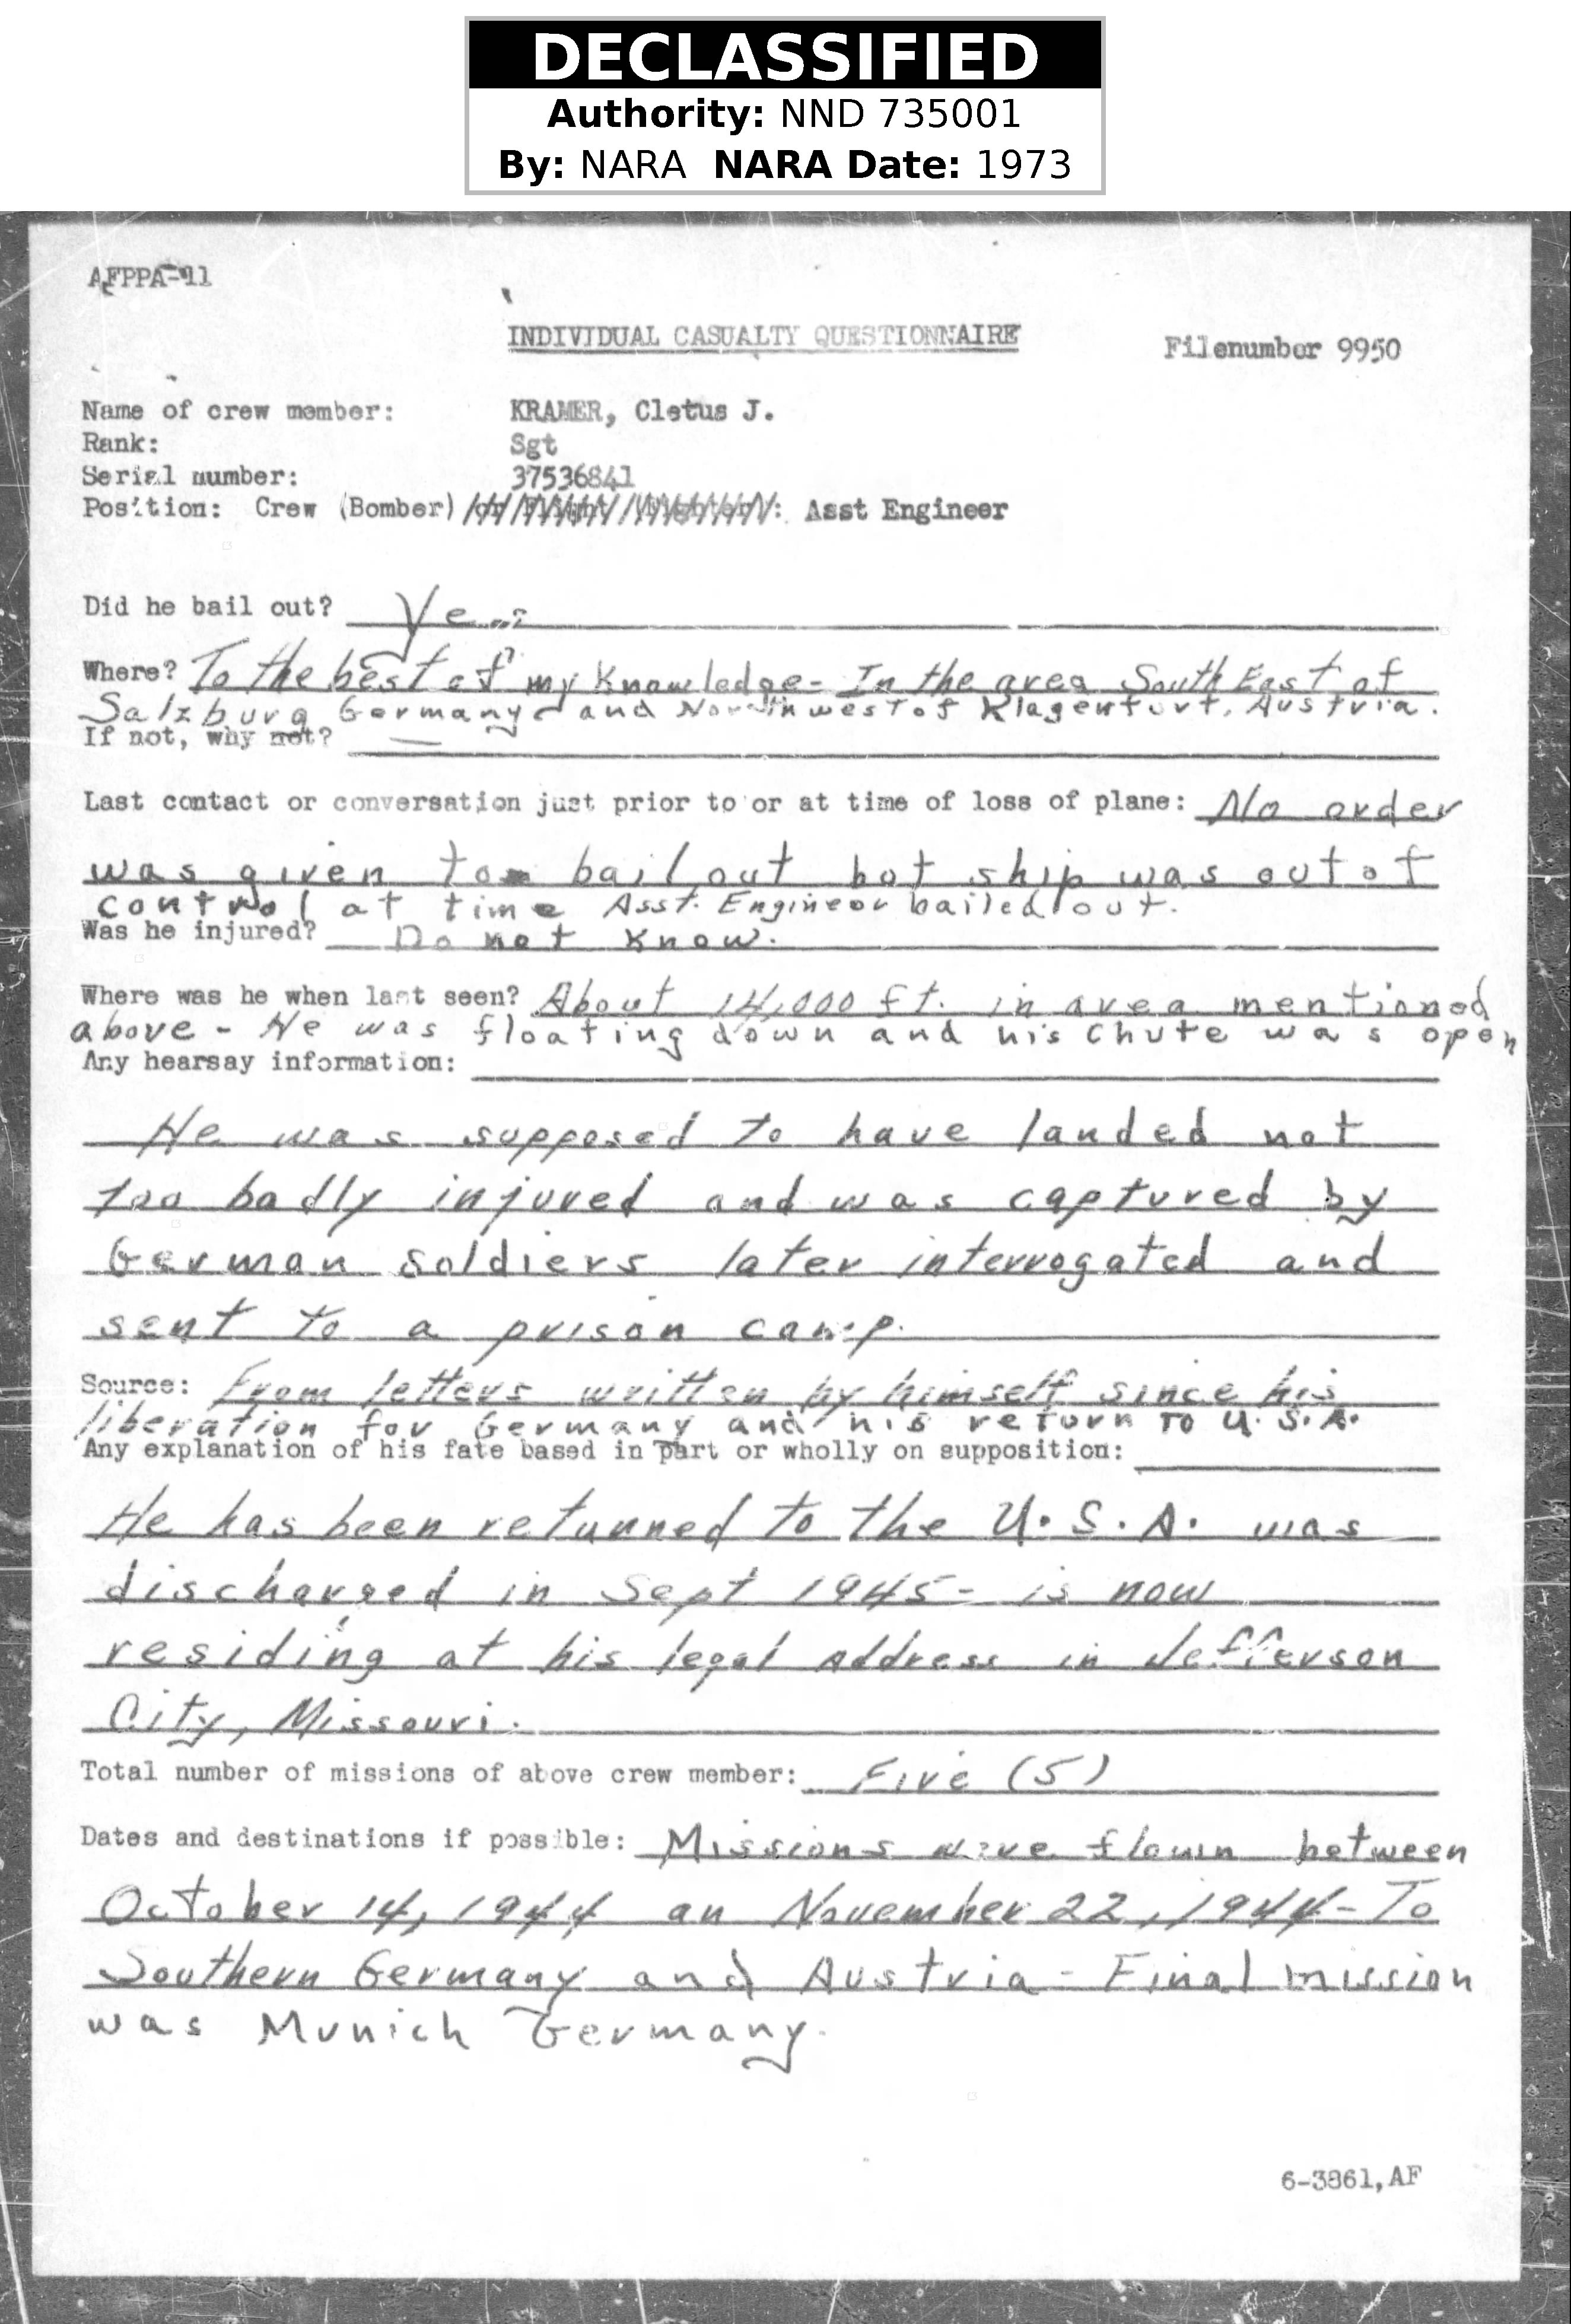 DECLASSIFIED
Authority: NND 735001
By: NARA NARA Date: 1973
AFPPA-11
INDIVIDUAL CASUALTY QUESTIONNAIRE
Filenumber 9950
Name of crew member: KRAMER, Cletus J.
Rank: Sgt
Serial number: 37536841
Position: Crew (Bomber) : Asst Engineer
Did he bail out? Yes
Where? To the best of my Knowledge - In the area South East of
Salzburg Germany and Northwest of Klagenfurt, Austria.
If not, why not? —
Last contact or conversation just prior to or at time of loss of plane: No order
was given to bail out but ship was out of
control at time Asst. Engineer bailed out.
Was he injured? Do not Know.
Where was he when last seen? About 14,000 ft. in area mentioned
above - He was floating down and his chute was open
Any hearsay information:
He was supposed to have landed not
too badly injured and was captured by
German soldiers later interrogated and
sent to a prison camp.
Source: From letters written by himself since his
liberation for Germany and his return to U.S.A.
Any explanation of his fate based in part or wholly on supposition:
He has been retunned to the U.S.A. was
discharged in Sept 1945 - is now
residing at his legal address in Jefferson
City, Missouri.
Total number of missions of above crew member: Five (5)
Dates and destinations if possible: Missions were flown between
October 14, 1944 an November 22, 1944 - To
Southern Germany and Austria - Final mission
was Munich Germany.
6-3861, AF